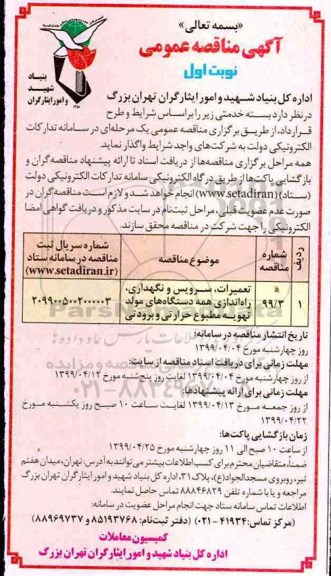 «بسمه تعالی»
آگهی مناقصه عمومی
نوبت اول
بنیاد
شهید
و امور ایثارگران
اداره کل بنیاد شهید و امور ایثارگران تهران بزرگ
در نظر دارد بسته خدمتی زیر را بر اساس شرایط و طرح
قرارداد، از طریق برگزاری مناقصه عمومی یک مرحله‌ای در سامانه تدارکات
الکترونیکی دولت به شرکت‌های واجد شرایط واگذار نماید.
همه مراحل برگزاری مناقصه‌ها از دریافت اسناد تا ارائه پیشنهاد مناقصه‌گران و
بازگشایی پاکت‌ها از طریق درگاه الکترونیکی سامانه تدارکات الکترونیکی دولت
(ستاد) (www.setadiran) انجام خواهد شد و لازم است مناقصه‌گران در
صورت عدم عضویت قبلی، مراحل ثبت‌نام در سایت مذکور و دریافت گواهی امضا
الکترونیکی را جهت شرکت در مناقصه محقق سازند.
ردیف
شماره مناقصه
موضوع مناقصه
شماره سریال ثبت
مناقصه در سامانه ستاد
(www.setadiran.ir)
۱
۹۹/۳
تعمیرات، سرویس و نگهداری،
راه‌اندازی همه دستگاه‌های مولد
تهویه مطبوع حرارتی و برودتی
۲۰۹۹۰۰۵۰۰۲۰۰۰۰۰۳
تاریخ انتشار مناقصه در سامانه:
روز چهارشنبه مورخ ۱۳۹۹/۰۴/۰۴
مهلت زمانی برای دریافت اسناد مناقصه از سایت:
از روز چهارشنبه مورخ ۱۳۹۹/۰۴/۰۴ لغایت روز پنج‌شنبه مورخ ۱۳۹۹/۰۴/۱۲
مهلت زمانی برای ارائه پیشنهادها:
از روز جمعه مورخ ۱۳۹۹/۰۴/۱۳ لغایت ساعت ۱۰ صبح روز یکشنبه مورخ
۱۳۹۹/۰۴/۲۲
زمان بازگشایی پاکت‌ها:
از ساعت ۱۰ صبح الی ۱۱ روز چهارشنبه مورخ ۱۳۹۹/۰۴/۲۵
ضمناً، متقاضیان محترم برای کسب اطلاعات بیشتر می‌توانند به آدرس: تهران، میدان هفتم
تیر، روبروی مسجد الجواد(ع)، پلاک ۳۱، اداره کل بنیاد شهید و امور ایثارگران تهران بزرگ
مراجعه و یا با شماره تلفن ۸۸۸۴۶۸۲۹ تماس حاصل نمایند.
اطلاعات تماس سامانه ستاد جهت انجام مراحل عضویت در سامانه:
(مرکز تماس: ۴۱۹۳۴-۰۲۱) (دفتر ثبت‌نام: ۸۵۱۹۳۷۶۸ و ۸۸۹۶۹۷۳۷)
کمیسیون معاملات
اداره کل بنیاد شهید و امور ایثارگران تهران بزرگ